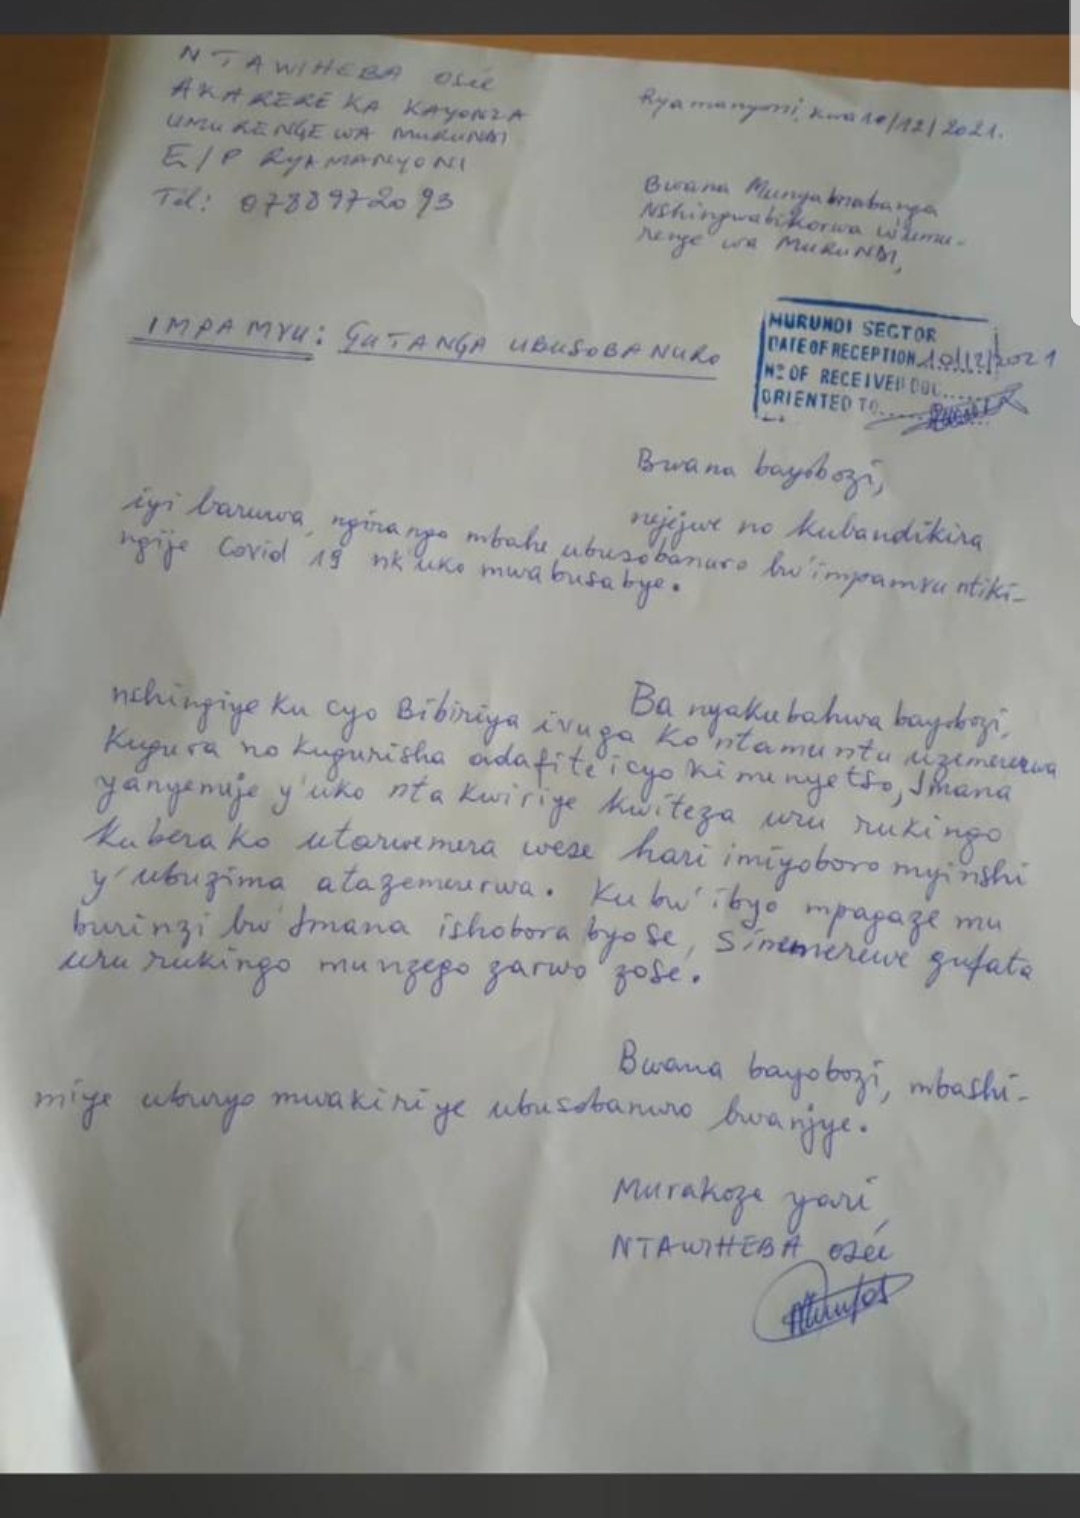 NTAWIHEBA Osée
AKARERE KA KAYONZA
UMURENGE WA MURUNDI
E/P RYAMANYONI
Tél: 0788972093
Ryamanyoni, kwa 10/12/2021.
Bwana Munyabanabanga
Nshingwabikorwa w'umu-
renge wa MURUNDI,
IMPAMVU: GUTANGA UBUSOBANURO
MURUNDI SECTOR
DATE OF RECEPTION 10/12/2021
N° OF RECEIVED DOC.......
ORIENTED TO.......
Bwana bayobozi,
nejejwe no kubandikira
iyi baruwa, ngira ngo mbahe ubusobanuro bw'impamvu ntiki-
ngije Covid 19 nk'uko mwabusabye.
Ba nyakubahwa bayobozi,
nshingiye ku cyo Bibiriya ivuga ko ntamuntu uzemererwa
kugura no kugurisha adafite icyo kimenyetso, Imana
yanyemeje y'uko nta kwiriye kwiteza uru rukingo
kubera ko utarwemera wese hari imiyoboro myinshi
y'ubuzima atazemererwa. Ku bw'ibyo mpagaze mu
burinzi bw'Imana ishobora byose, sinemerewe gufata
uru rukingo mu nzego zarwo zose.
Bwana bayobozi, mbashi-
miye uburyo mwakiriye ubusobanuro bwanjye.
Murakoze yari
NTAWIHEBA Osée